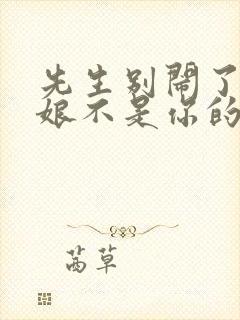 先生别鬧了
娘不是你的
茜草